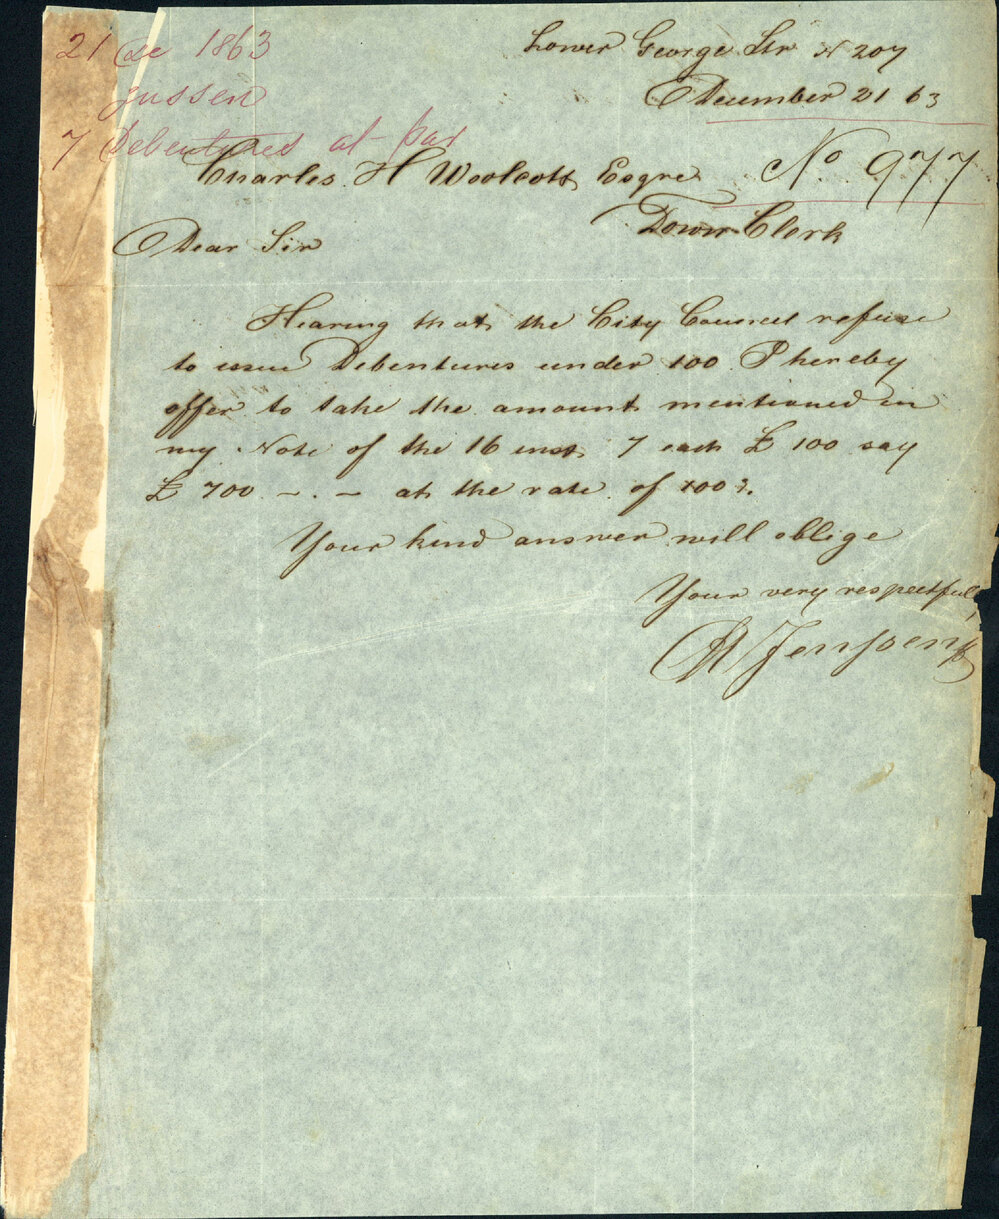 21 Dec 1863
Jussen
7 Debentures at par
Lower George Str N 207
December 21 63
No 977
Charles H Woolcott Esqre
Town Clerk
Dear Sir
Hearing that the City Council refuse
to issue Debentures under 100 I hereby
offer to take the amount mentioned in
my Note of the 16 inst 7 each £ 100 say
£ 700 - . - at the rate of 100%.
Your kind answer will oblige
Your very respectful,